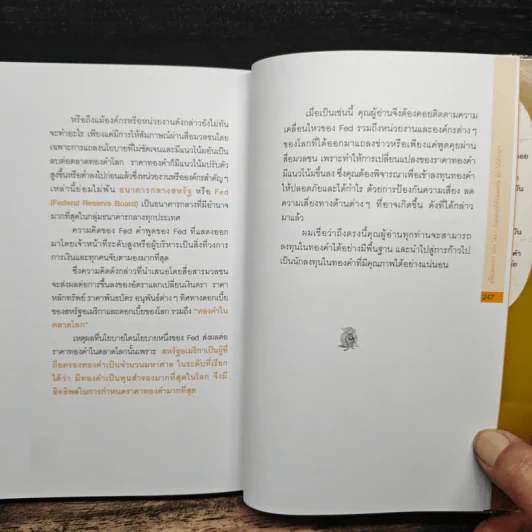 หรือถึงแม้องค์กรหรือหน่วยงานดังกล่าวยังไม่ทัน
จะทำอะไร เพียงแค่มีการให้สัมภาษณ์ผ่านสื่อมวลชนโดย
เฉพาะการแถลงนโยบายที่ไม่ชัดเจนและมีแนวโน้มอันเป็น
ลบต่อตลาดทองคำโลก ราคาทองคำก็มีแนวโน้มปรับตัว
สูงขึ้นหรือต่ำลงไปก่อนแล้วซึ่งหน่วยงานหรือองค์กรสำคัญๆ
เหล่านี้ย่อมไม่พ้น ธนาคารกลางสหรัฐ หรือ Fed
(Federal Reserve Board) เป็นธนาคารกลางที่มีอำนาจ
มากที่สุดในกลุ่มธนาคารกลางทุกประเทศ
ความคิดของ Fed คำพูดของ Fed ที่แสดงออก
มาโดยเจ้าหน้าที่ระดับสูงหรือผู้บริหารเป็นสิ่งที่วงการ
การเงินและทุกคนจับตามองมากที่สุด
ซึ่งความคิดดังกล่าวที่นำเสนอโดยสื่อสารมวลชน
จะส่งผลต่อการขึ้นลงของอัตราแลกเปลี่ยนเงินตรา ราคา
หลักทรัพย์ ราคาพันธบัตร อนุพันธ์ต่างๆ ทิศทางดอกเบี้ย
ของสหรัฐอเมริกาและดอกเบี้ยของโลก รวมถึง “ทองคำใน
ตลาดโลก”
เหตุผลที่นโยบายใดนโยบายหนึ่งของ Fed ส่งผลต่อ
ราคาทองคำในตลาดโลกนั้นเพราะ สหรัฐอเมริกาเป็นผู้ที่
ถือครองทองคำเป็นจำนวนมหาศาล ในระดับที่เรียก
ได้ว่า มีทองคำเป็นทุนสำรองมากที่สุดในโลก จึงมี
อิทธิพลในการกำหนดราคาทองคำมากที่สุด
เมื่อเป็นเช่นนี้ คุณผู้อ่านจึงต้องคอยติดตามความ
เคลื่อนไหวของ Fed รวมถึงหน่วยงานและองค์กรต่างๆ
ของโลกที่ได้ออกมาแถลงข่าวหรือเพียงแค่พูดคุยผ่าน
สื่อมวลชน เพราะทำให้การเปลี่ยนแปลงของราคาทองคำ
มีแนวโน้มขึ้นลง ซึ่งคุณต้องพิจารณาเพื่อเข้าลงทุนทองคำ
ให้ปลอดภัยและได้กำไร ด้วยการป้องกันความเสี่ยง ลด
ความเสี่ยงทางด้านต่างๆ ที่อาจเกิดขึ้น ดังที่ได้กล่าว
มาแล้ว
ผมเชื่อว่าถึงตรงนี้คุณผู้อ่านทุกท่านจะสามารถ
ลงทุนในทองคำได้อย่างมีพื้นฐาน และนำไปสู่การก้าวไป
เป็นนักลงทุนในทองคำที่มีคุณภาพได้อย่างแน่นอน
247